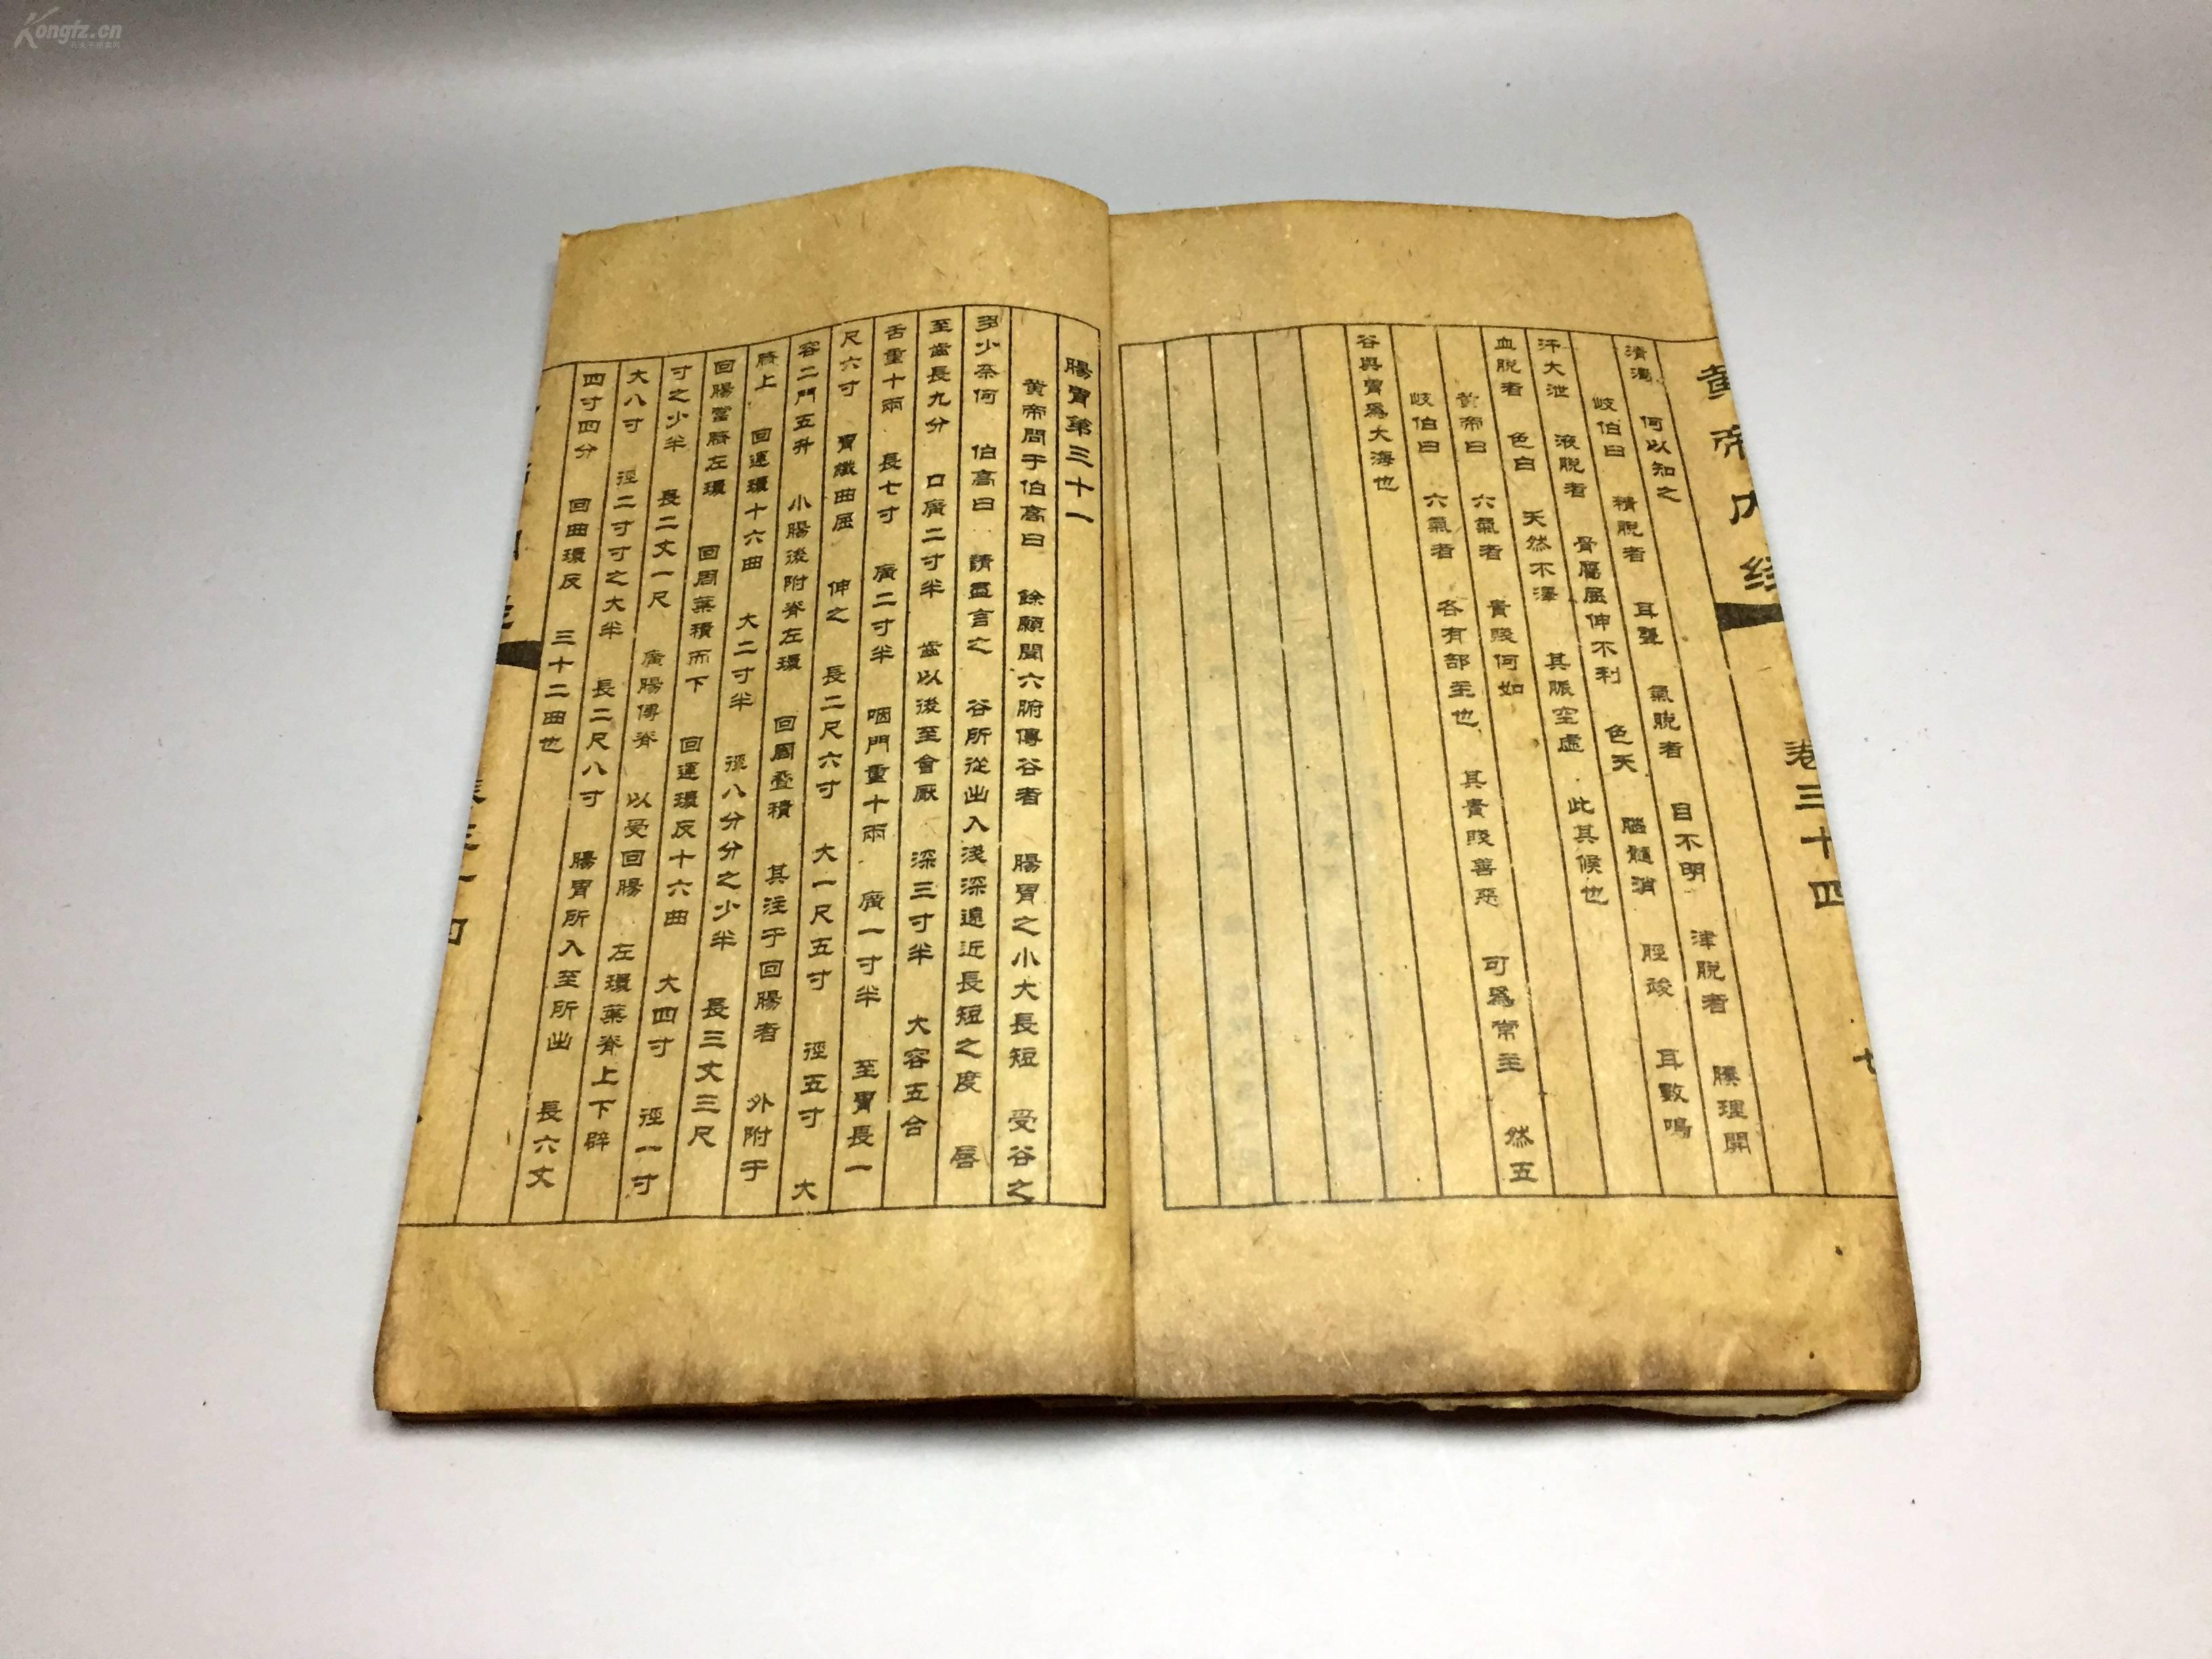 Kongfz.cn
黄帝内经
卷三十四
清濁 何以知之
岐伯曰 精脱者 耳聾 氣脱者 目不明 津脱者 腠理開
汗大泄 液脱者 骨屬屈伸不利 色天 腦髓消 脛痠 耳數鳴
血脱者 色白 天然不澤 其脈空虛 此其候也
黄帝曰 六氣者 貴賤何如
岐伯曰 六氣者 各有部主也 其貴賤善惡 可爲常主 然五
谷與胃爲大海也
腸胃第三十一
黄帝問于伯高曰 餘願聞六腑傳谷者 腸胃之小大長短 受谷之
多少奈何 伯高曰 請盡言之 谷所從出入淺深遠近長短之度 唇
至齒長九分 口廣二寸半 齒以後至會厭 深三寸半 大容五合
舌重十兩 長七寸 廣二寸半 咽門重十兩 廣一寸半 至胃長一
尺六寸 胃纖曲屈 伸之 長二尺六寸 大一尺五寸 徑五寸 大
容二鬥五升 小腸後附脊左環 回周疊積 其注于回腸者 外附于
臍上 回運環十六曲 大二寸半 徑八分分之少半 長三丈三尺
回腸當臍左環 回周葉積而下 回運環反十六曲 大四寸 徑一寸
寸之少半 長二丈一尺 廣腸傳脊 以受回腸 左環葉脊上下辟
大八寸 徑二寸寸之大半 長二尺八寸 腸胃所入至所出 長六丈
四寸四分 回曲環反 三十二曲也